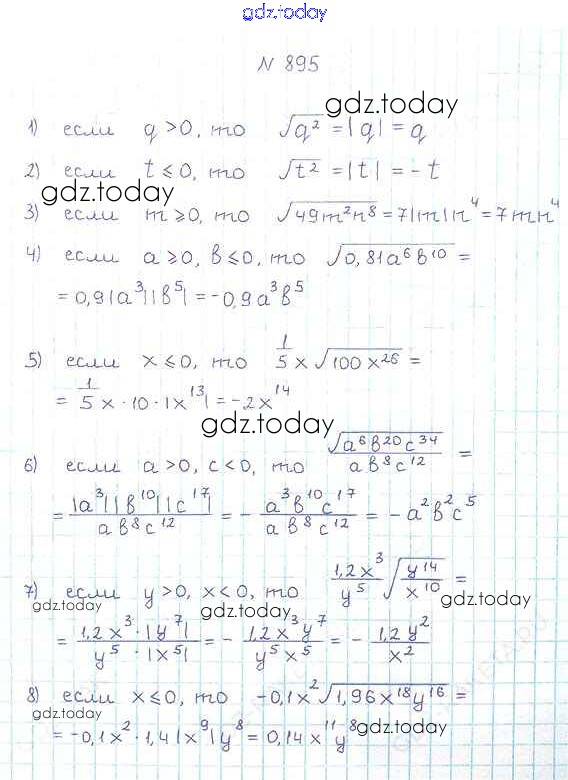 gdz.today
N 895
gdz.today
1) если q > 0, то √q² = |q| = q
2) если t ≤ 0, то √t² = |t| = -t
gdz.today
3) если m ≥ 0, то √49m²n⁸ = 7|m|n⁴ = 7mn⁴
4) если a ≥ 0, в ≤ 0, то √0,81a⁶в¹⁰ =
gdz.today
= 0,9|a³||в⁵| = -0,9a³в⁵
5) если x ≤ 0, то 1/5 x √100x²⁶ =
gdz.today
= 1/5 x · 10 · |x¹³| = -2x¹⁴
gdz.today
6) если a > 0, c < 0, то √a⁶в²⁰c³⁴ / aв⁸c¹² =
= |a³||в¹⁰||c¹⁷| / aв⁸c¹² = - a³в¹⁰c¹⁷ / aв⁸c¹² = -a²в²c⁵
7) если y > 0, x < 0, то 1,2x³/y⁵ √y¹⁴/x¹⁰ =
gdz.today gdz.today gdz.today
= 1,2x³ · |y⁷| / y⁵ · |x⁵| = - 1,2x³y⁷ / y⁵x⁵ = - 1,2y² / x²
8) если x ≤ 0, то -0,1x² √1,96x¹⁸y¹⁶ =
gdz.today gdz.today
= -0,1x² · 1,4|x⁹|y⁸ = 0,14x¹¹y⁸